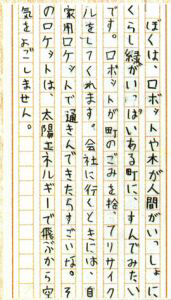 ぼくは、ロボットや木が人間がいっしょに
くらし緑がいっぱいある町に、すんでみたい
です。ロボットが町のごみを捨、てリサイク
ルをしてくれます。会社に行くときには、自
家用ロケットで通きんできたらすごいな。そ
のロケットは、太陽エネルギーで飛ぶから空
気をよごしません。